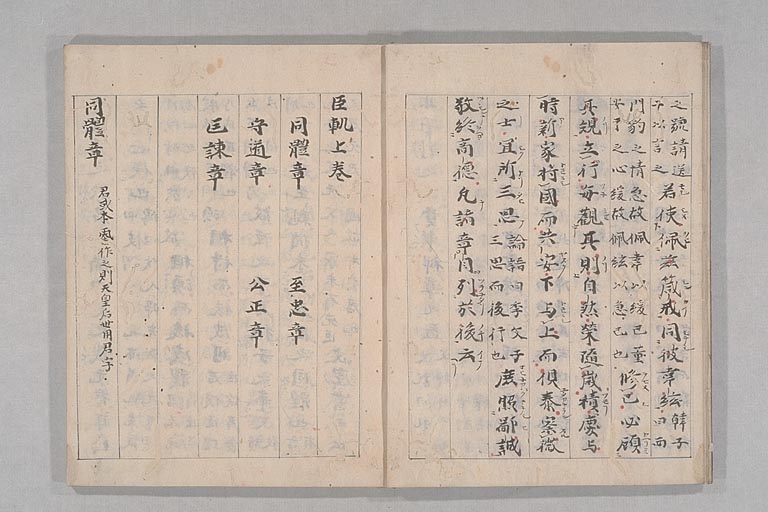 若使佩茲箴戒同彼韋絃 韓子曰西
門豹之情急故佩韋以緩已董
安于之心緩故佩絃以急已也 修己必顧
其規立行每觀其則自然榮隨歲積慶与
時新家将國而共安下与上而俱泰察微
之士宜所三思 論語曰季文子
三思而後行也 庶照鄙誠
敬終高德凡諸章目列於後云
臣軌上卷
同體章 至忠章
守道章 公正章
匡諫章
同體章 君或本𢘑作之則天皇后世用君字